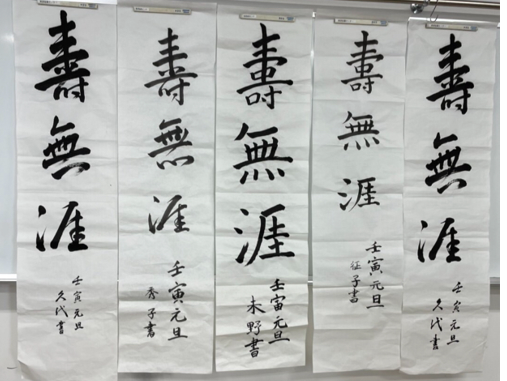 壽無涯
壬寅元旦
久代書
壽無涯
壬寅元旦
秀子書
壽無涯
壬寅元旦
書
壽無涯
壬寅元旦
征子書
壽無涯
壬寅元旦
久代書